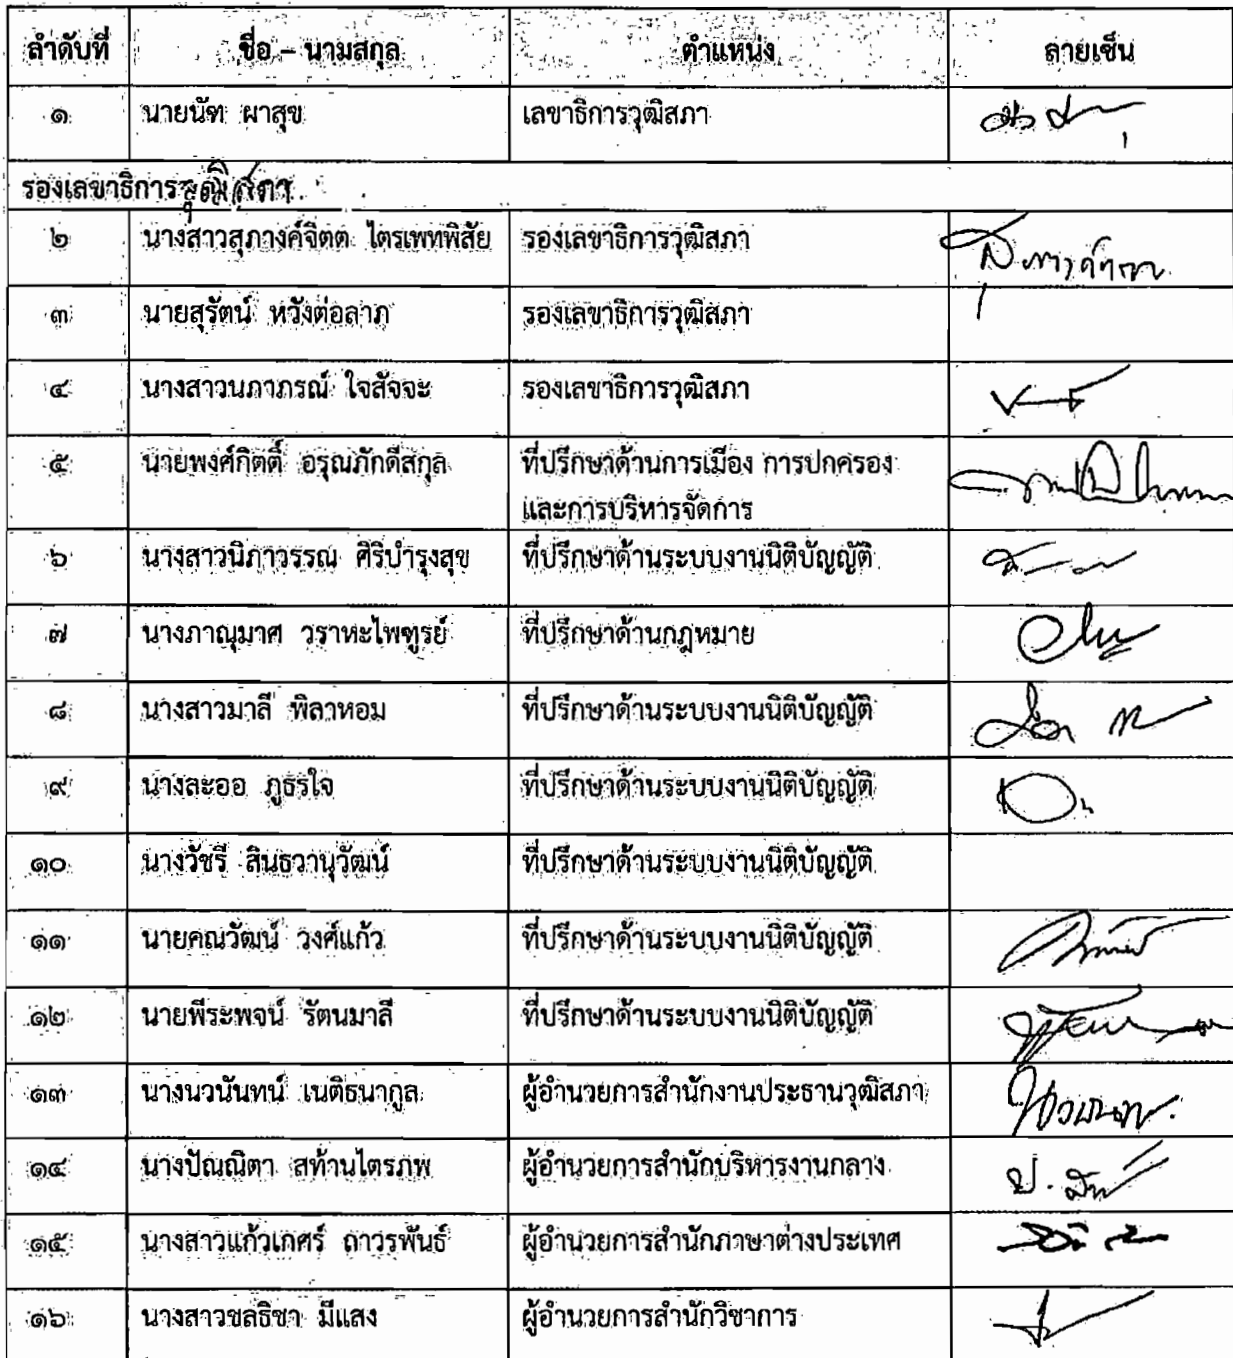 ลำดับที่ ชื่อ – นามสกุล ตำแหน่ง ลายเซ็น
๑ นายนัท ผาสุข เลขาธิการวุฒิสภา
รองเลขาธิการวุฒิสภา
๒ นางสาวสุภางค์จิตต ไตรเพทพิสัย รองเลขาธิการวุฒิสภา
๓ นายสุรัตน์ หวังต่อลาภ รองเลขาธิการวุฒิสภา
๔ นางสาวนภาภรณ์ ใจสัจจะ รองเลขาธิการวุฒิสภา
๕ นายพงศ์กิตติ์ อรุณภักดีสกุล ที่ปรึกษาด้านการเมือง การปกครอง
และการบริหารจัดการ
๖ นางสาวนิภาวรรณ ศิริบำรุงสุข ที่ปรึกษาด้านระบบงานนิติบัญญัติ
๗ นางภาณุมาศ วราหะไพฑูรย์ ที่ปรึกษาด้านกฎหมาย
๘ นางสาวมาลี พิลาหอม ที่ปรึกษาด้านระบบงานนิติบัญญัติ
๙ นางละออ ภูธรใจ ที่ปรึกษาด้านระบบงานนิติบัญญัติ
๑๐ นางวัชรี สินธวานุวัฒน์ ที่ปรึกษาด้านระบบงานนิติบัญญัติ
๑๑ นายคณวัฒน์ วงศ์แก้ว ที่ปรึกษาด้านระบบงานนิติบัญญัติ
๑๒ นายพีระพจน์ รัตนมาลี ที่ปรึกษาด้านระบบงานนิติบัญญัติ
๑๓ นางนวนันทน์ เนติธนากูล ผู้อำนวยการสำนักงานประธานวุฒิสภา
๑๔ นางปัณณิตา สท้านไตรภพ ผู้อำนวยการสำนักบริหารงานกลาง
๑๕ นางสาวแก้วเกศร์ ถาวรพันธ์ ผู้อำนวยการสำนักภาษาต่างประเทศ
๑๖ นางสาวชลธิชา มีแสง ผู้อำนวยการสำนักวิชาการ